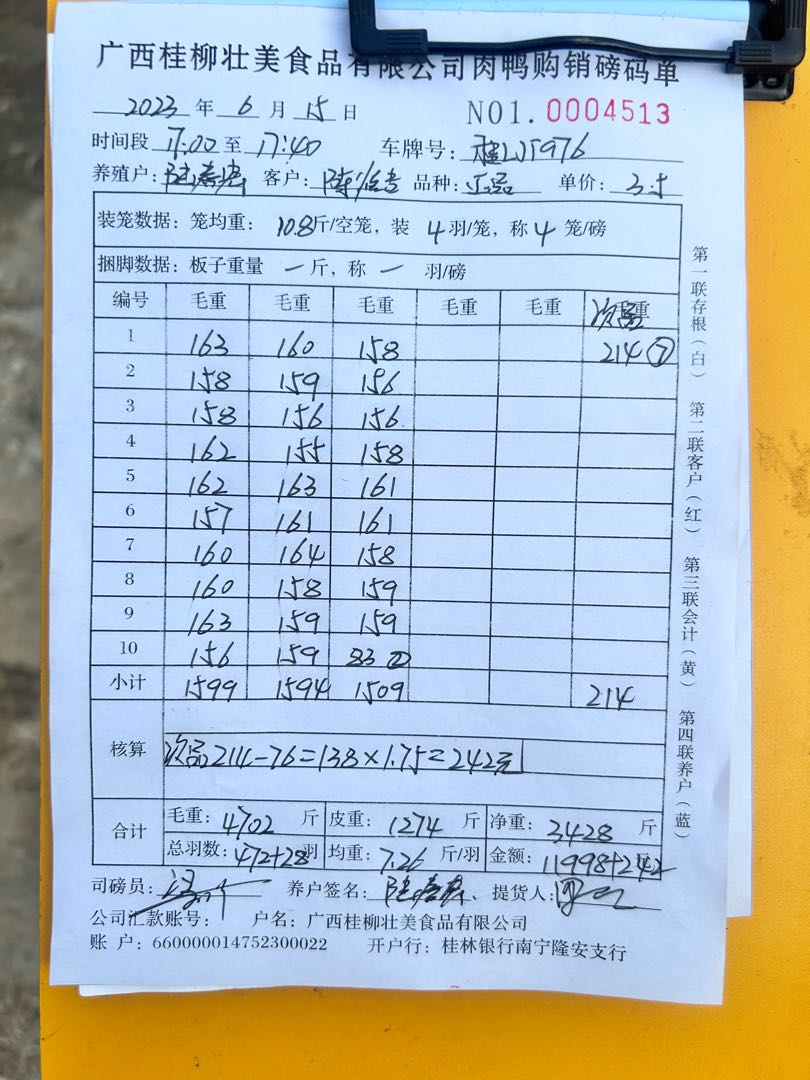 广西桂柳壮美食品有限公司肉鸭购销磅码单
2023 年 6 月 15 日 NO1. 0004513
时间段 7:00 至 17:40 车牌号: 桂
养殖户: 客户: 陈 品种: 正品 单价: 3.5
装笼数据: 笼均重: 10.8斤/空笼, 装 4 羽/笼, 称 4 笼/磅
捆脚数据: 板子重量 一 斤, 称 一 羽/磅
编号 毛重 毛重 毛重 毛重 毛重 次品
1 163 160 158 214 ⑦
2 158 159 156
3 158 156 156
4 162 155 158
5 162 163 161
6 157 161 161
7 160 164 158
8 160 158 159
9 163 159 159
10 156 159 83 ②
小计 1599 1594 1509 214
核算 次品214-76=138×1.75=242元
合计 毛重: 4702 斤 皮重: 1274 斤 净重: 3428 斤
总羽数: 472+28羽 均重: 7.26 斤/羽 金额: 11998+242
司磅员: 养户签名: 提货人:
公司汇款账号: 户名: 广西桂柳壮美食品有限公司
账 户: 660000014752300022 开户行: 桂林银行南宁隆安支行
第一联存根(白) 第二联客户(红) 第三联会计(黄) 第四联养户(蓝)